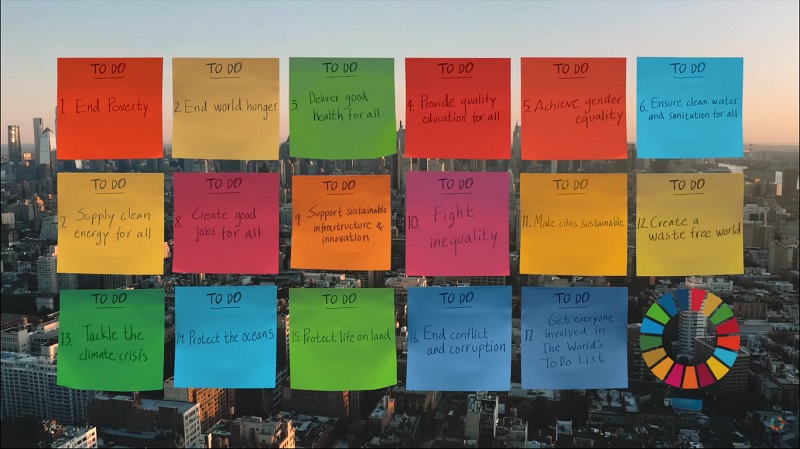 TO DO
1. End Poverty
TO DO
2. End world hunger
TO DO
3. Deliver good
health for all
TO DO
4. Provide quality
education for all
TO DO
5. Achieve gender
equality
TO DO
6. Ensure clean water
and sanitation for all
TO DO
7. Supply clean
energy for all
TO DO
8. Create good
jobs for all
TO DO
9. Support sustainable
infrastructure &
innovation
TO DO
10. Fight
inequality
TO DO
11. Make cities sustainable
TO DO
12. Create a
waste free world
TO DO
13. Tackle the
climate crisis
TO DO
14. Protect the oceans
TO DO
15. Protect life on land
TO DO
16. End conflict
and corruption
TO DO
17. Get everyone
involved in
The World's
To Do List